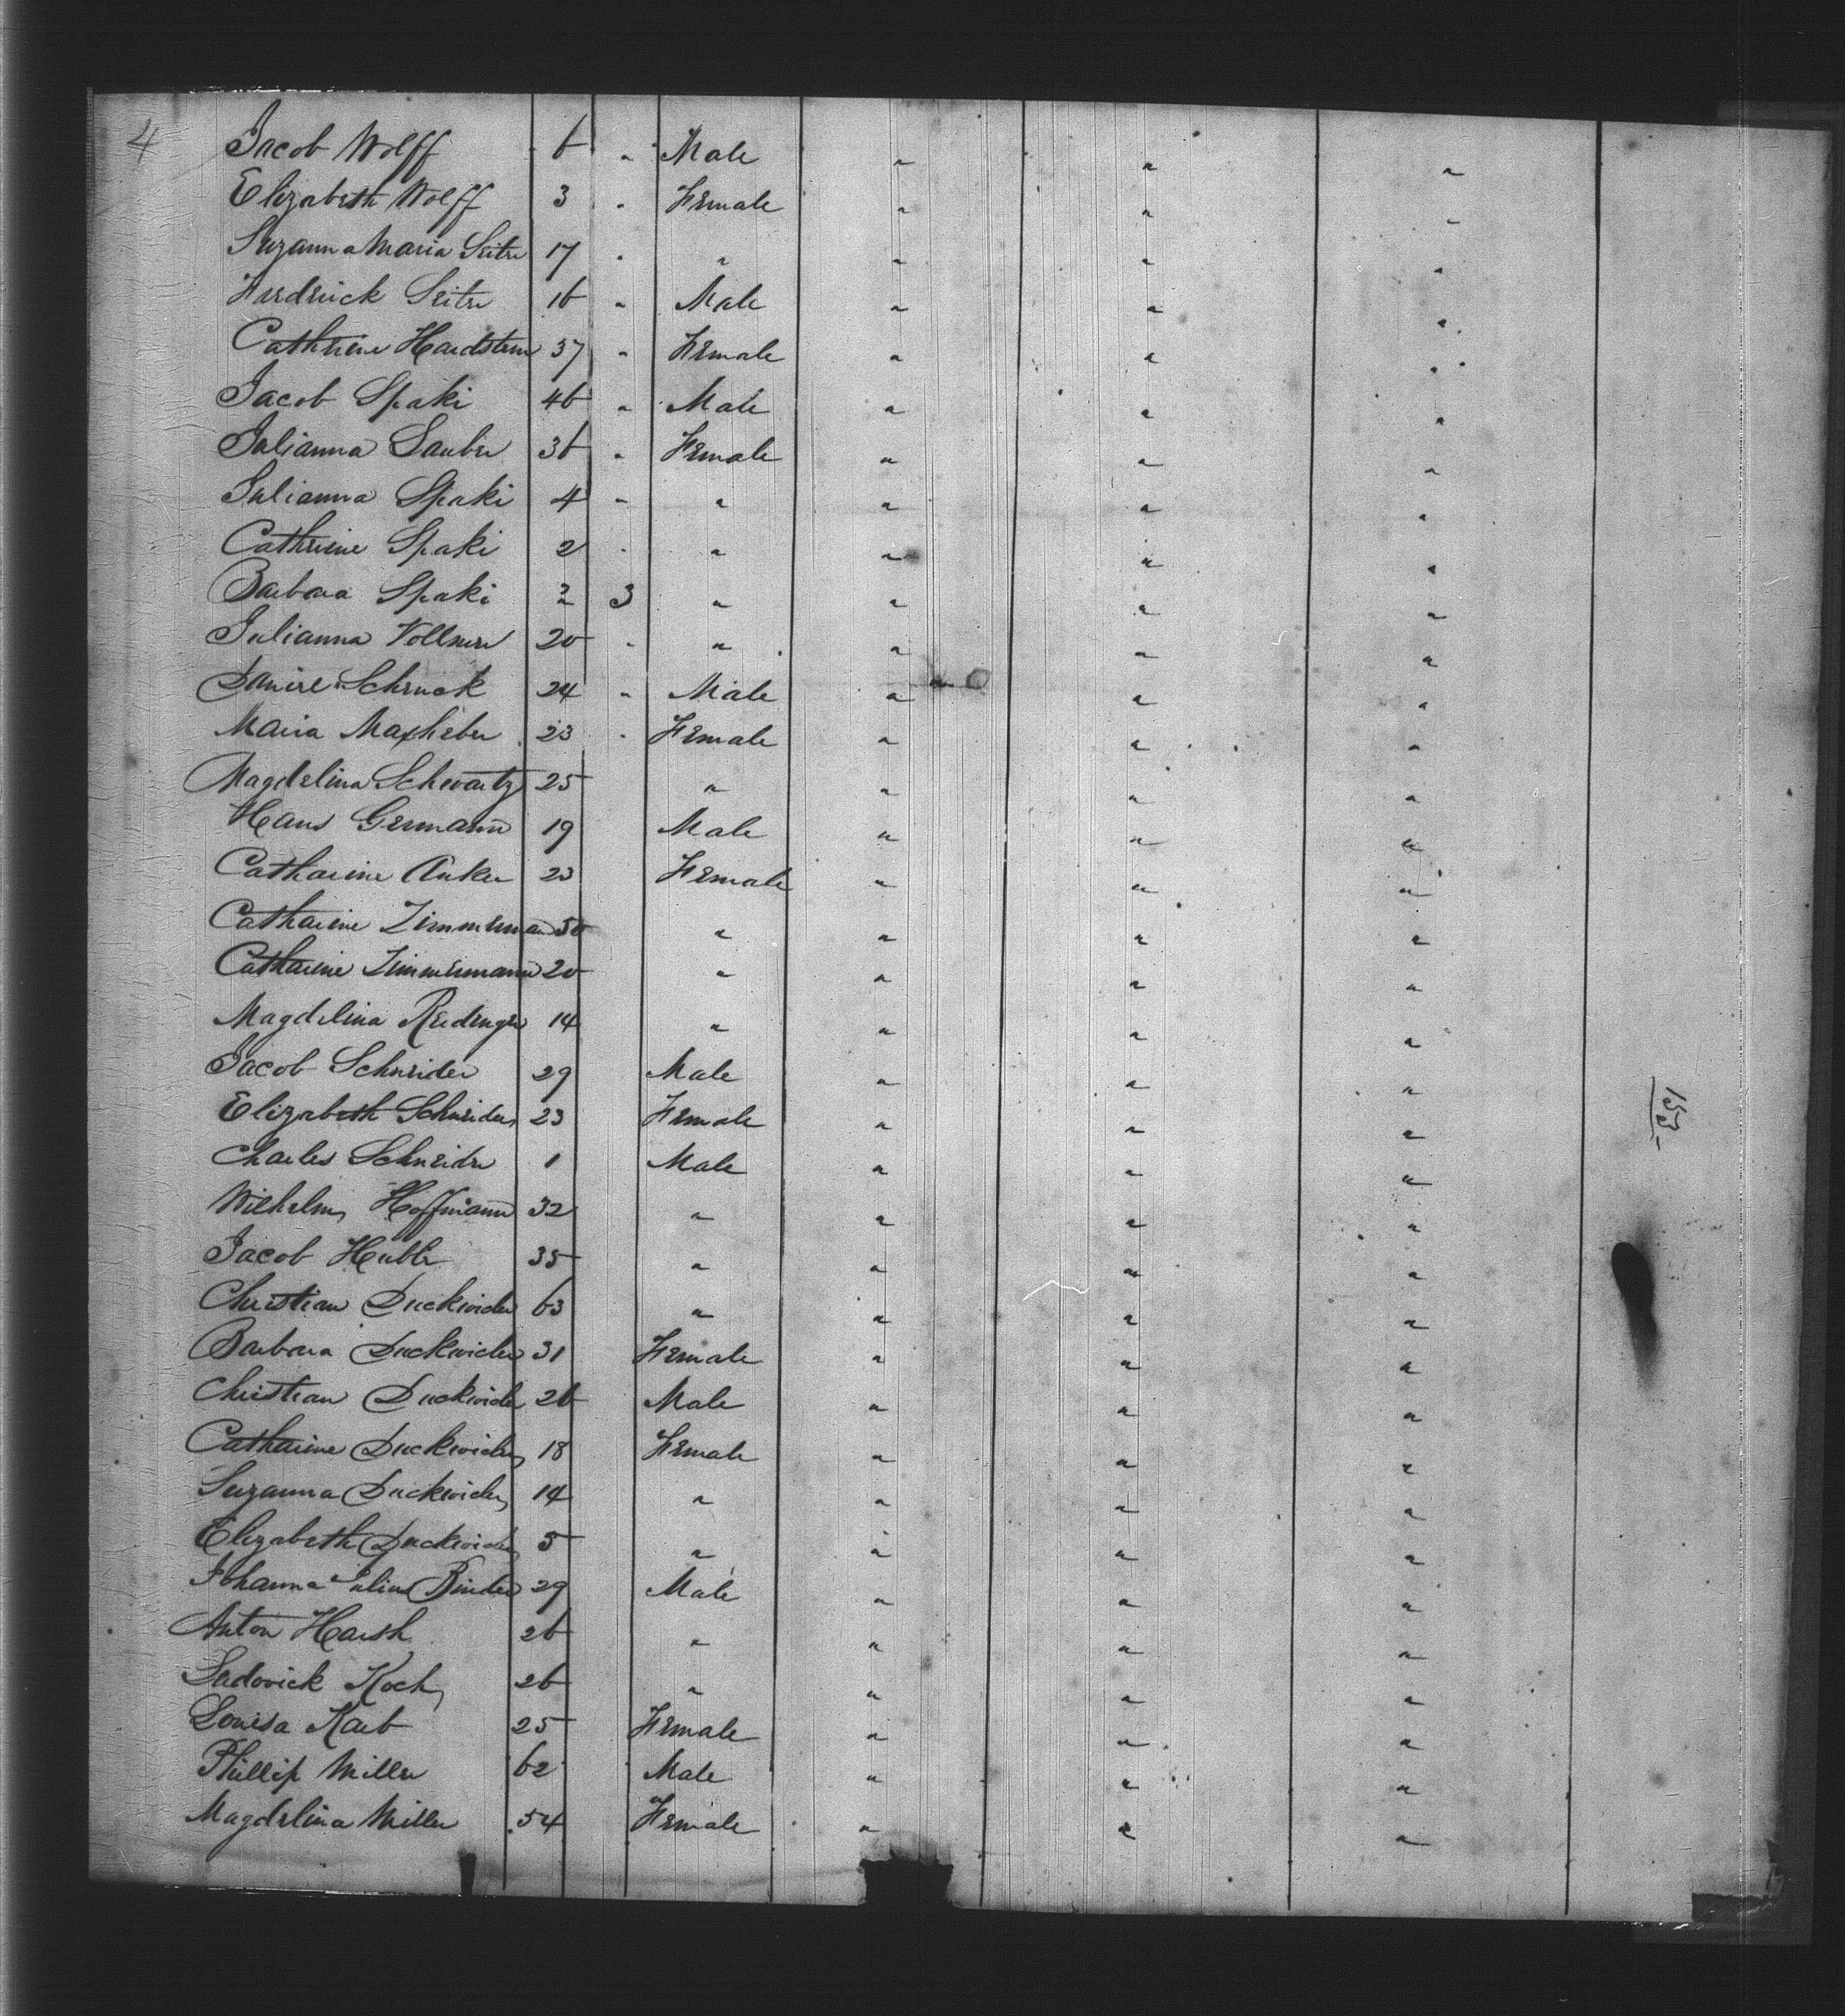 4
Jacob Wolff 6 " Male " " "
Elizabeth Wolff 3 " Female " " "
Suzanna Maria Seitre 17 " " " " "
Fredrick Seitre 16 " Male " " "
Cathrine Hardstein 37 " Female " " "
Jacob Spaki 46 " Male " " "
Julianna Sauber 36 " Female " " "
Julianna Spaki 4 " " " " "
Cathrine Spaki 2 " " " " "
Barbara Spaki " 3 " " " "
Julianna Vollmer 20 " " " " "
Schenck 24 " Male " " "
Maria 23 " Female " " "
Magdelina Schwartz 25 " " " "
Hans Germann 19 Male " " "
Catharine Anker 23 Female " " "
Catharine Zimmerman 50 " " " "
Catharine Zimmermann 20 " " " "
Magdelina Redinger 14 " " " "
Jacob Schneider 29 Male " " "
Elizabeth Schneider 23 Female " " "
Charles Schneider 1 Male " " "
Wilhelm Hoffmann 32 " " " "
Jacob Huble 35 " " " "
Christian Duckwider 63 " " " "
Barbara Duckwider 31 Female " " "
Christian Duckwider 26 Male " " "
Catharine Duckwider 18 Female " " "
Suzanna Duckwider 14 " " " "
Elizabeth Duckwider 5 " " " "
Johanna Julius Binder 29 Male " " "
Anton Harsh 26 " " " "
Ludovick Koch 26 " " " "
Louisa Karb 25 Female " " "
Phillip Miller 62 Male " " "
Magdelina Miller 54 Female " " "